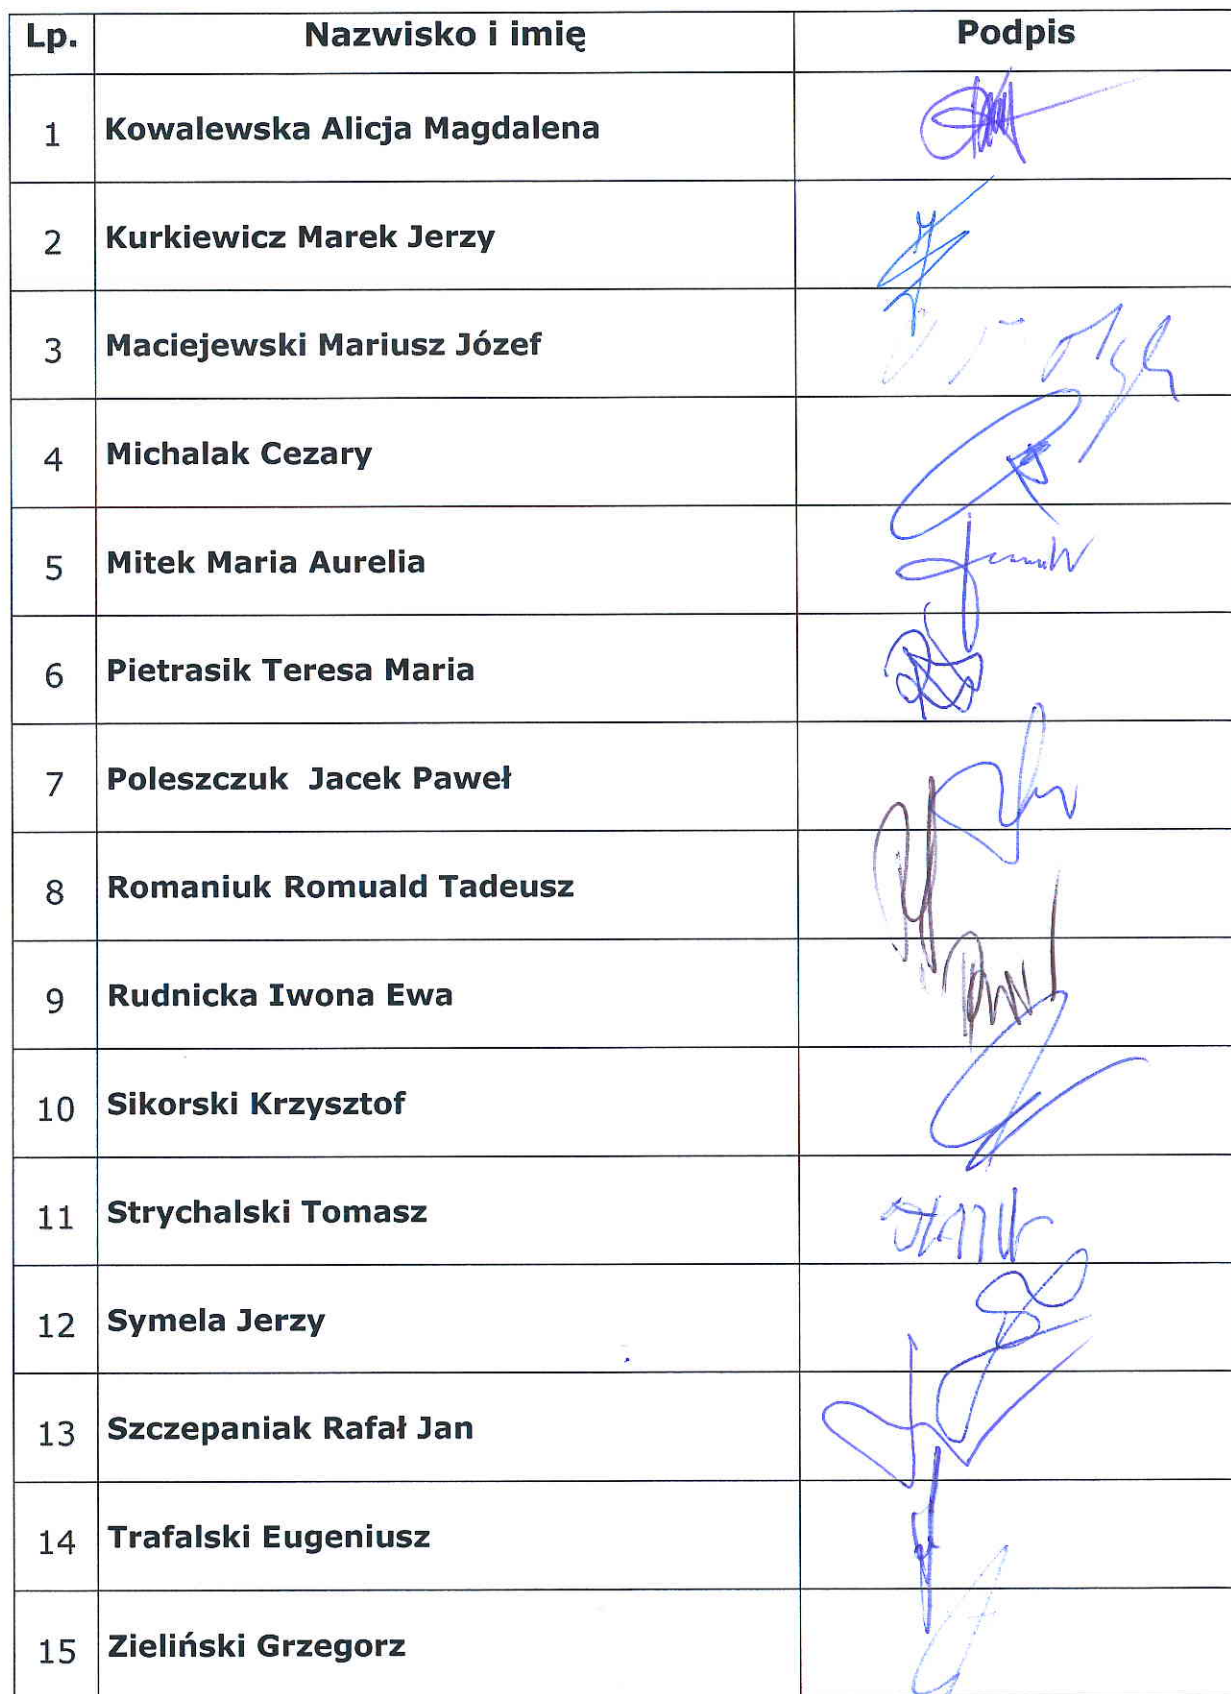 Lp. Nazwisko i imię Podpis
1 Kowalewska Alicja Magdalena
2 Kurkiewicz Marek Jerzy
3 Maciejewski Mariusz Józef
4 Michalak Cezary
5 Mitek Maria Aurelia
6 Pietrasik Teresa Maria
7 Poleszczuk Jacek Paweł
8 Romaniuk Romuald Tadeusz
9 Rudnicka Iwona Ewa
10 Sikorski Krzysztof
11 Strychalski Tomasz
12 Symela Jerzy
13 Szczepaniak Rafał Jan
14 Trafalski Eugeniusz
15 Zieliński Grzegorz